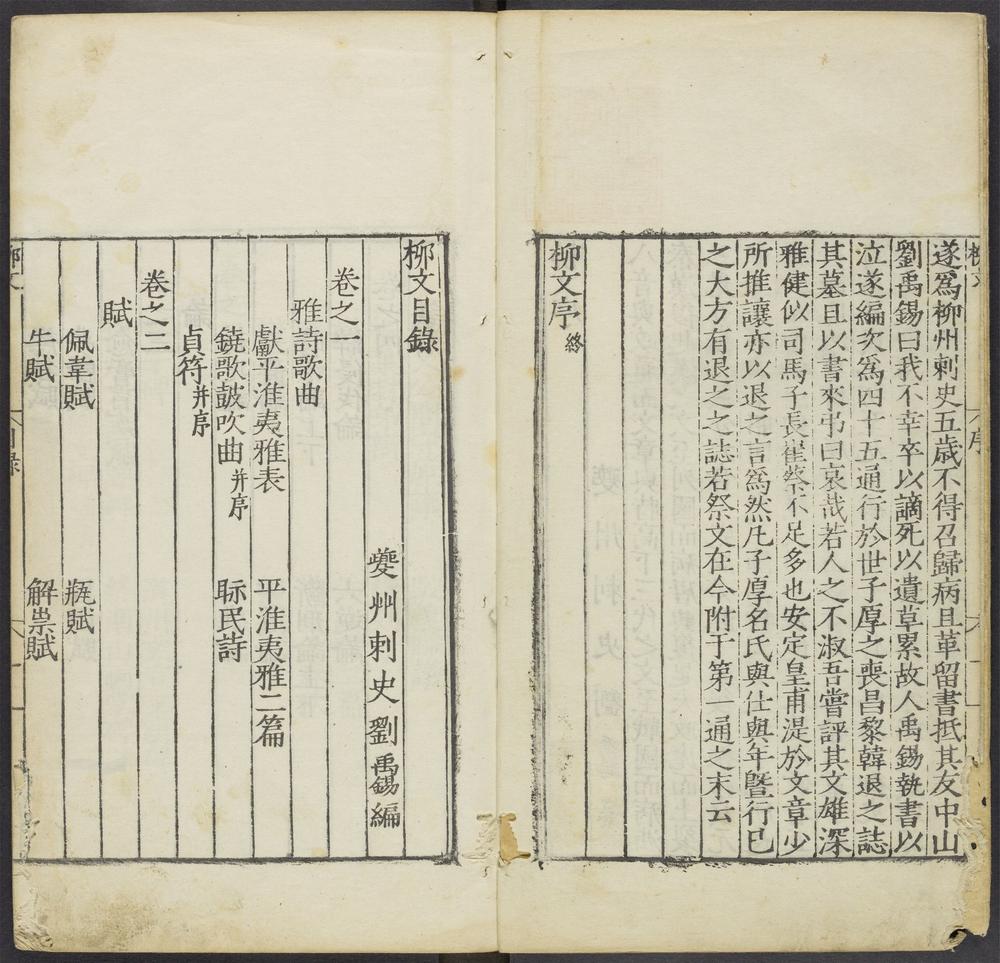 遂爲柳州刺史五歲不得召歸病且革留書抵其友中山
劉禹錫曰我不幸卒以謫死以遺草累故人禹錫執書以
泣遂編次爲四十五通行於世子厚之喪昌黎韓退之誌
其墓且以書來弔曰哀哉若人之不淑吾嘗評其文雄深
雅健似司馬子長崔蔡不足多也安定皇甫湜於文章少
所推讓亦以退之言爲然凡子厚名氏與仕與年曁行已
之大方有退之之誌若祭文在今附于第一通之末云
柳文序 終
柳文目錄
夔州刺史劉禹錫編
卷之一
雅詩歌曲
獻平淮夷雅表 平淮夷雅二篇
鐃歌鼓吹曲并序 眎民詩
貞符并序
卷之二
賦
佩韋賦 瓶賦
牛賦 解祟賦